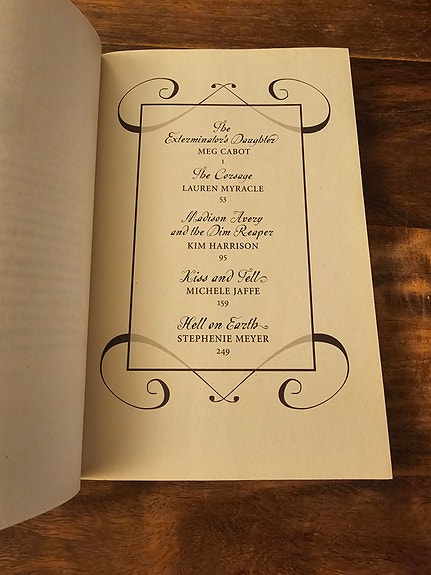 The
Exterminator's Daughter
MEG CABOT
1
The Corsage
LAUREN MYRACLE
53
Madison Avery
and the Dim Reaper
KIM HARRISON
95
Kiss and Tell
MICHELE JAFFE
159
Hell on Earth
STEPHENIE MEYER
249